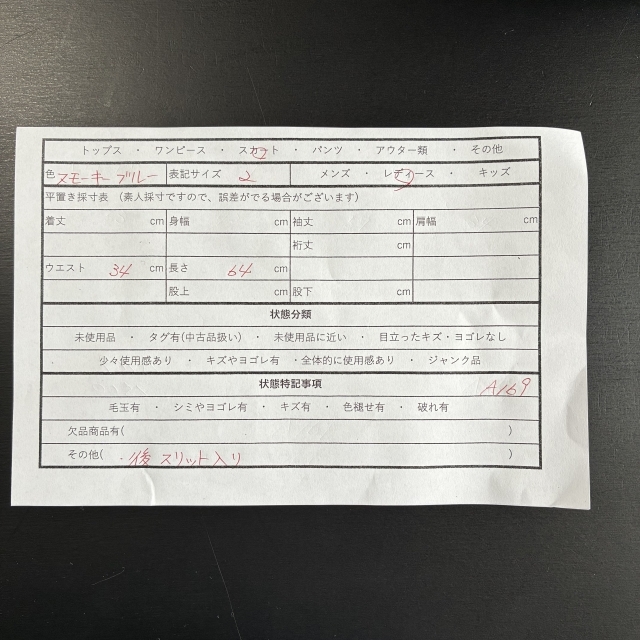 トップス ・ ワンピース ・ スカート ・ パンツ ・ アウター類 ・ その他
色 スモーキーブルー 表記サイズ 2 メンズ ・ レディース ・ キッズ
平置き採寸表 (素人採寸ですので、誤差がでる場合がございます)
着丈 cm 身幅 cm 袖丈 cm 肩幅 cm
裄丈 cm
ウエスト 34 cm 長さ 64 cm
股上 cm 股下 cm
状態分類
未使用品 ・ タグ有(中古品扱い) ・ 未使用品に近い ・ 目立ったキズ・ヨゴレなし
少々使用感あり ・ キズやヨゴレ有 ・全体的に使用感あり ・ ジャンク品
状態特記事項 A169
毛玉有 ・ シミやヨゴレ有 ・ キズ有 ・ 色褪せ有 ・ 破れ有
欠品商品有( )
その他( ・後スリット入り )